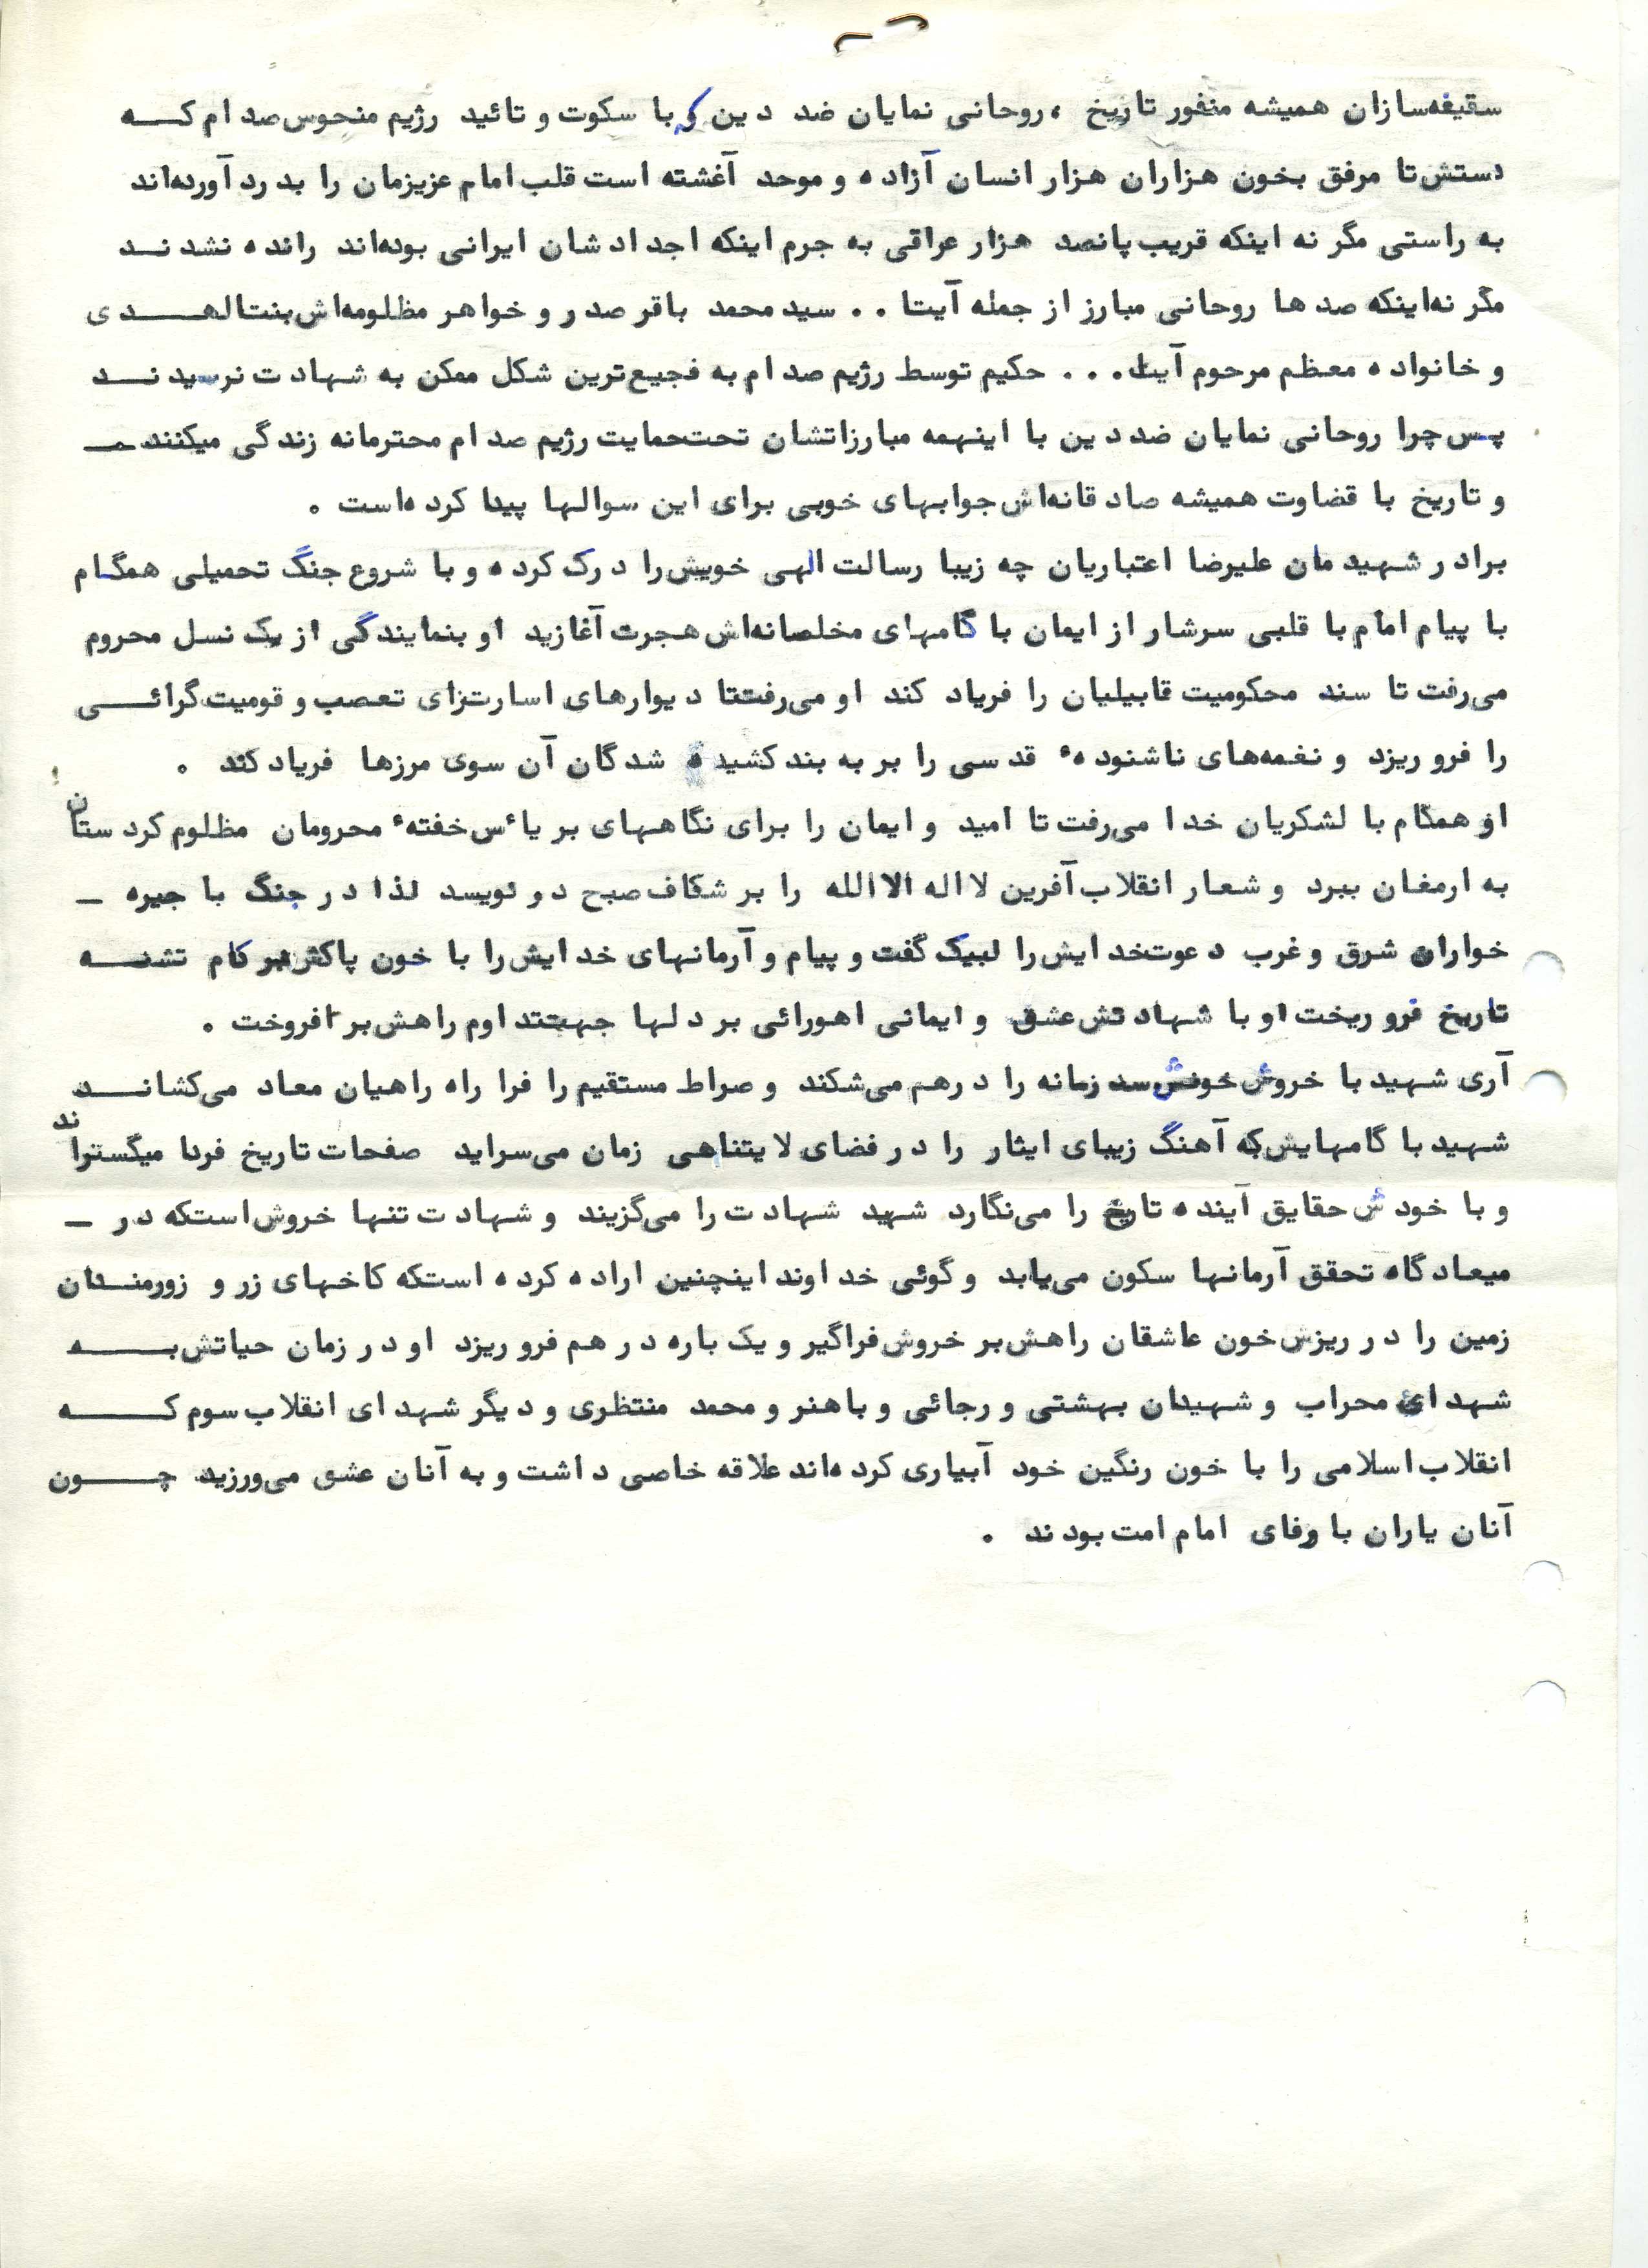 سقیفه‌سازان همیشه منفور تاریخ ، روحانی نمایان ضد دین که با سکوت و تائید رژیم منحوس صدام که
دستش تا مرفق بخون هزاران هزار انسان آزاده و موحد آغشته است قلب امام عزیزمان را بدرد آورده‌اند
به راستی مگر نه اینکه قریب پانصد هزار عراقی به جرم اینکه اجدادشان ایرانی بوده‌اند رانده نشدند
مگر نه‌اینکه صدها روحانی مبارز از جمله آیتا . . سید محمد باقر صدر و خواهر مظلومه‌اش بنت‌الهدی
و خانواده معظم مرحوم آیتا. . . حکیم توسط رژیم صدام به فجیع‌ترین شکل ممکن به شهادت نرسیدند
پس چرا روحانی نمایان ضددین با اینهمه مبارزاتشان تحت‌حمایت رژیم صدام محترمانه زندگی میکنند
و تاریخ با قضاوت همیشه صادقانه‌اش جوابهای خوبی برای این سوالها پیدا کرده‌است .
برادر شهیدمان علیرضا اعتباریان چه زیبا رسالت الهی خویش را درک کرده و با شروع جنگ تحمیلی همگام
با پیام امام با قلبی سرشار از ایمان با گامهای مخلصانه‌اش هجرت آغازید او بنمایندگی از یک نسل محروم
می‌رفت تا سند محکومیت قابیلیان را فریاد کند او می‌رفت‌تا دیوارهای اسارت‌زای تعصب و قومیت‌گرائی
را فرو ریزد و نغمه‌های ناشنودهٔ قدسی را بر به بند کشیده شدگان آن سوی مرزها فریاد کند .
او همگام با لشکریان خدا می‌رفت تا امید و ایمان را برای نگاههای بر یأس خفتهٔ محرومان مظلوم کردستان
به ارمغان ببرد و شعار انقلاب آفرین لا اله الا الله را بر شکاف صبح دو نویسد لذا در جنگ با جیره –
خواران شرق و غرب دعوت‌خدایش را لبیک گفت و پیام و آرمانهای خدایش را با خون پاکش بر کام تشنه
تاریخ فرو ریخت او با شهادتش عشق و ایمانی اهورائی بر دلها جهت‌تداوم راهش بر افروخت .
آری شهید با خروش خونش سد زمانه را درهم می‌شکند و صراط مستقیم را فرا راه راهیان معاد می‌کشاند
شهید با گامهایش که آهنگ زیبای ایثار را در فضای لایتناهی زمان می‌سراید صفحات تاریخ فردا میگستراند
و با خودش حقایق آینده تاریخ را می‌نگارد شهید شهادت را می‌گزیند و شهادت تنها خروش است‌که در –
میعادگاه تحقق آرمانها سکون می‌یابد و گوئی خداوند اینچنین اراده کرده است‌که کاخهای زر و زورمندان
زمین را در ریزش خون عاشقان راهش بر خروش فراگیر و یک باره در هم فرو ریزد او در زمان حیاتش به
شهدای محراب و شهیدان بهشتی و رجائی و باهنر و محمد منتظری و دیگر شهدای انقلاب سوم که
انقلاب اسلامی را با خون رنگین خود آبیاری کرده‌اند علاقه خاصی داشت و به آنان عشق می‌ورزید چون
آنان یاران با وفای امام امت بودند .